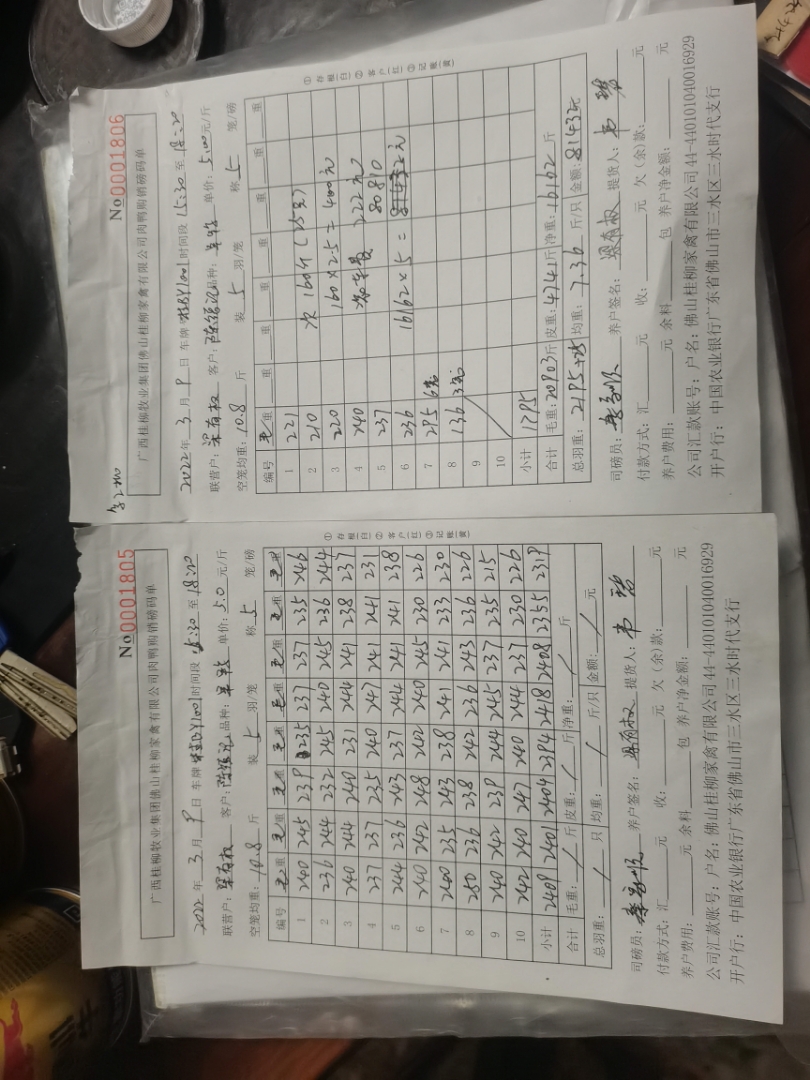 广西桂柳牧业集团佛山桂柳家禽有限公司肉鸭购销磅码单
No 0001805
2022年 3月 9日 车牌 桂BY1001 时间段 15:30 至 18:20
联营户: 梁有权 客户: 品种: 单价: 5.0 元/斤
空笼均重: 10.8 斤 装 5 羽/笼 称 5 笼/磅
编号 毛重 毛重 毛重 毛重 毛重 毛重 毛重 毛重
1 240 245 239 235 237 237 235 246
2 236 244 232 245 240 245 236 244
3 240 244 240 231 244 241 238 237
4 237 237 235 240 247 241 241 231
5 244 236 243 237 244 241 241 238
6 240 242 248 242 240 245 230 226
7 240 235 243 238 241 241 233 230
8 250 236 238 242 236 243 236 226
9 240 242 239 244 245 237 235 215
10 242 240 247 240 244 237 230 226
小计 2409 2401 2404 2394 2418 2408 2355 2319
合计 毛重: / 斤 皮重: / 斤 净重: / 斤
总羽重: / 只 均重: / 斤/只 金额: / 元
①存根(白) ②客户(红) ③记账(黄)
司磅员: 养户签名: 梁有权 提货人:
付款方式: 汇 元 收: 元 欠(余)款: 元
养户费用: 元 余料 包 养户净金额: 元
公司汇款账号: 户名: 佛山桂柳家禽有限公司 44-440101040016929
开户行: 中国农业银行广东省佛山市三水区三水时代支行
广西桂柳牧业集团佛山桂柳家禽有限公司肉鸭购销磅码单
No 0001806
2022年 3月 9日 车牌 桂BY1001 时间段 15:30 至 18:20
联营户: 梁有权 客户: 品种: 单价: 5.00 元/斤
空笼均重: 10.8 斤 装 5 羽/笼 称 5 笼/磅
编号 毛重 重 重 重 重 重
1 221
2 210 次 160斤(25只)
3 220 160×2.5=400元
4 240 222元
5 237 80810
6 236 16162×5=
7 295 6笼
8 136 3笼
9
10
小计 1795
合计 毛重: 20903斤 皮重: 4741斤 净重: 16162 斤
总羽重: 2195 均重: 7.36 斤/只 金额: 81432元
①存根(白) ②客户(红) ③记账(黄)
司磅员: 养户签名: 梁有权 提货人:
付款方式: 汇 元 收: 元 欠(余)款: 元
养户费用: 元 余料 包 养户净金额: 元
公司汇款账号: 户名: 佛山桂柳家禽有限公司 44-440101040016929
开户行: 中国农业银行广东省佛山市三水区三水时代支行